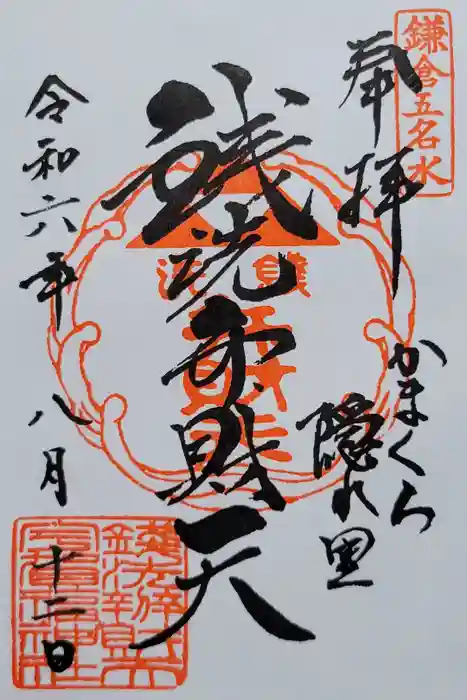 鎌倉五名水
奉拝
かまくら
隠れ里
銭洗弁財天
令和六年
八月
十二日